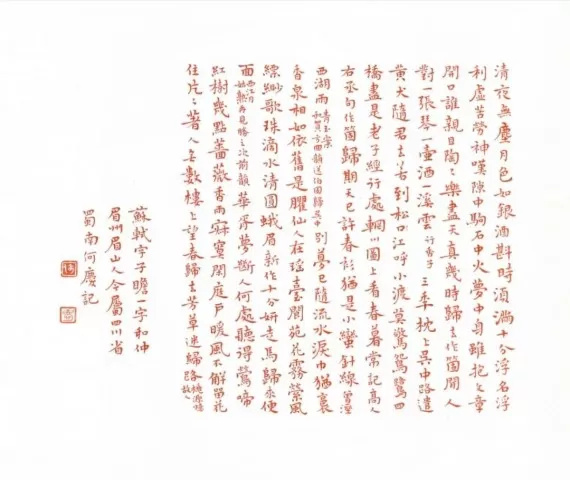 清夜無塵月色如銀酒斟時須滿十分浮名浮
利虛苦勞神嘆隙中駒石中火夢中身雖抱文章
開口誰親且陶〻樂盡天真幾時歸去作箇閒人
對一張琴一壺酒一溪雲 行香子 三年枕上吳中路遣
黃犬隨君去若到松江呼小渡莫驚鴛鷺四
橋盡是老子經行處輞川圖上看春暮常記高人
右丞句作箇歸期天已許春衫猶是小蠻針線曾濕
西湖雨 青玉案 和賀方回韻送伯固歸吳中 別夢已隨流水淚巾猶裛
香泉相如依舊是臞仙人在瑤臺閬苑花霧縈風
縹緲歌珠滴水清圓蛾眉新作十分妍走馬歸來便
面 西江月 姑熟再見勝之次前韻 華胥夢斷人何處聽得鶯啼
紅樹幾點薔薇香雨寂寞閒庭戶暖風不解留花
住片〻著人無數樓上望春歸去芳草迷歸路 桃源憶故人
蘇軾字子瞻一字和仲
眉州眉山人今屬四川省
蜀南何慶記